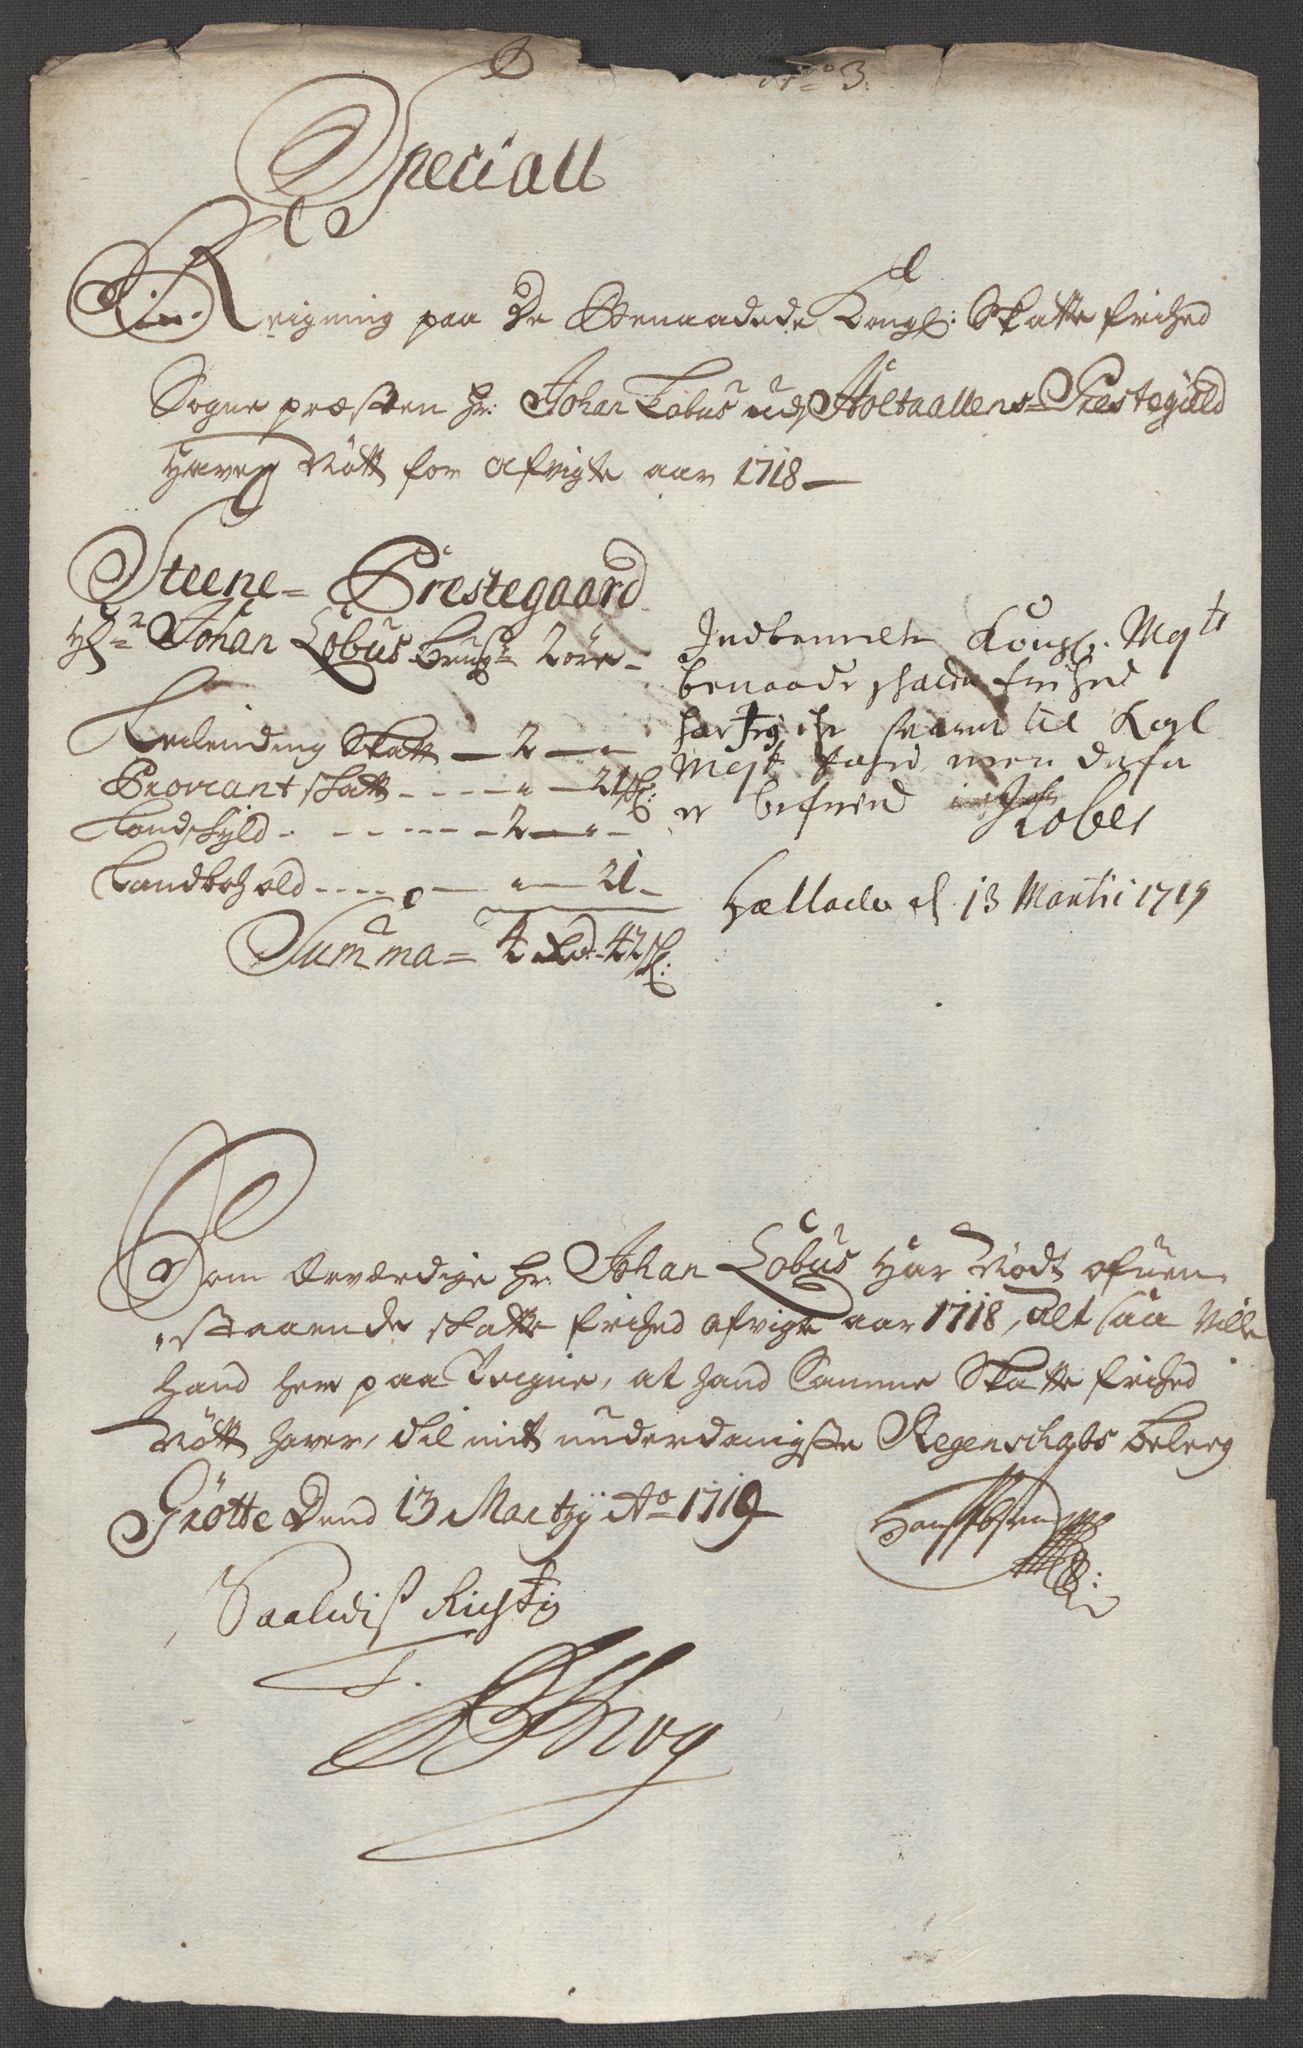 No 3.
Speciall
Reigning paa De Benaadede Kongl: Skatte friehed
Sogne præsten hr: Johan Lobus udj Holtaallens Prestegield
Haver Nött for afvigte aar 1718
Steene- Prestegaard
Hr Johan Lobus brug. 2 öre
Leilending Skatt - 2 - "
Proviant skatt - - - " - 21 sk:
Landskyld - - - 2 - " -
Landbohold - - - " - 21 -
Summa = 4 Rd. 42 sk:
Indbemelte Kongl. Mayts
benaade skatte frihed
har Jeg iche svaret til Kogl
Mayt men
er befried JLobes
d 13 Martii 1719
Som Ærværdige hr: Johan Lobus Har Nødt ofuen
staaende skatte friehed afvigte aar 1718, alt saa Ville
Hand her paa Teigne, at hand Samme Skatte friehed
Nött haver, til mit underdanigste Regenschabs beleeg
Grötte Dend 13 Martzij Ao 1719
Saaledis Richtig
T.